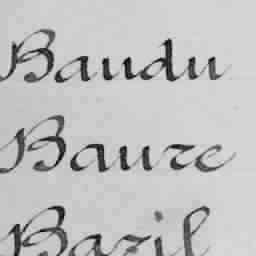 Baudu
Baure
Bazil